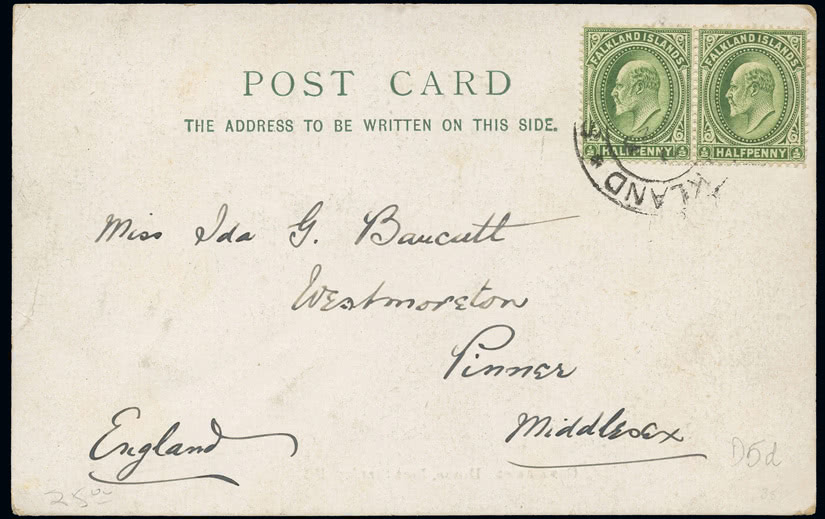 POST CARD
THE ADDRESS TO BE WRITTEN ON THIS SIDE.
FALKLAND ISLANDS
½ HALFPENNY ½
FALKLAND ISLANDS
½ HALFPENNY ½
KLAND
Miss Ida G. Barcutt
Westmoreton
Pinner
Middlesex
England
D5d